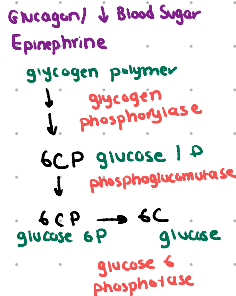 Glucagon/ ↓ Blood Sugar
Epinephrine
glycogen polymer
glycogen
phosphorylase
6CP glucose 1 P
phosphoglucomutase
6CP → 6C
glucose 6P glucose
glucose 6
phosphatase